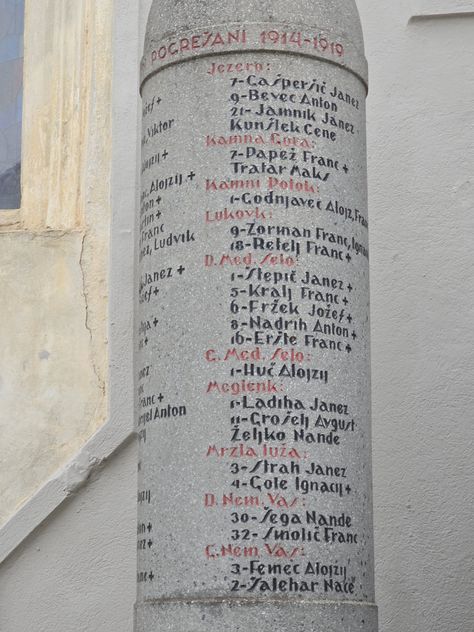 POGREŠANI 1914-1919
Jezero:
7-Gašperšič Janez
9-Bevec Anton
21-Jamnik Janez
Kunšlek Cene
Kamna Gora:
7-Papež Franc +
Tratar Maks
Kamni Potok:
1-Godnjavec Alojz, Fran
Lukovk:
9-Zorman Franc, Ignac
18-Retelj Franc +
D. Med. Selo:
1-Stepič Janez +
5-Kralj Franc +
6-Fržek Jožef +
8-Nadrih Anton +
16-Eršte Franc +
G. Med. Selo:
1-Huč Alojzij
Meglenk:
1-Ladiha Janez
11-Grošelj Avgust
Željko Nande
Mrzla luža:
3-Strah Janez
4-Gole Ignacij +
D. Nem. Vas:
30-Šega Nande
32-Smolič Franc
G. Nem. Vas:
3-Femec Alojzij
2-Salehar Nace
Viktor
Alojzij +
Franc
Ludvik
Janez +
Franc +
Anton